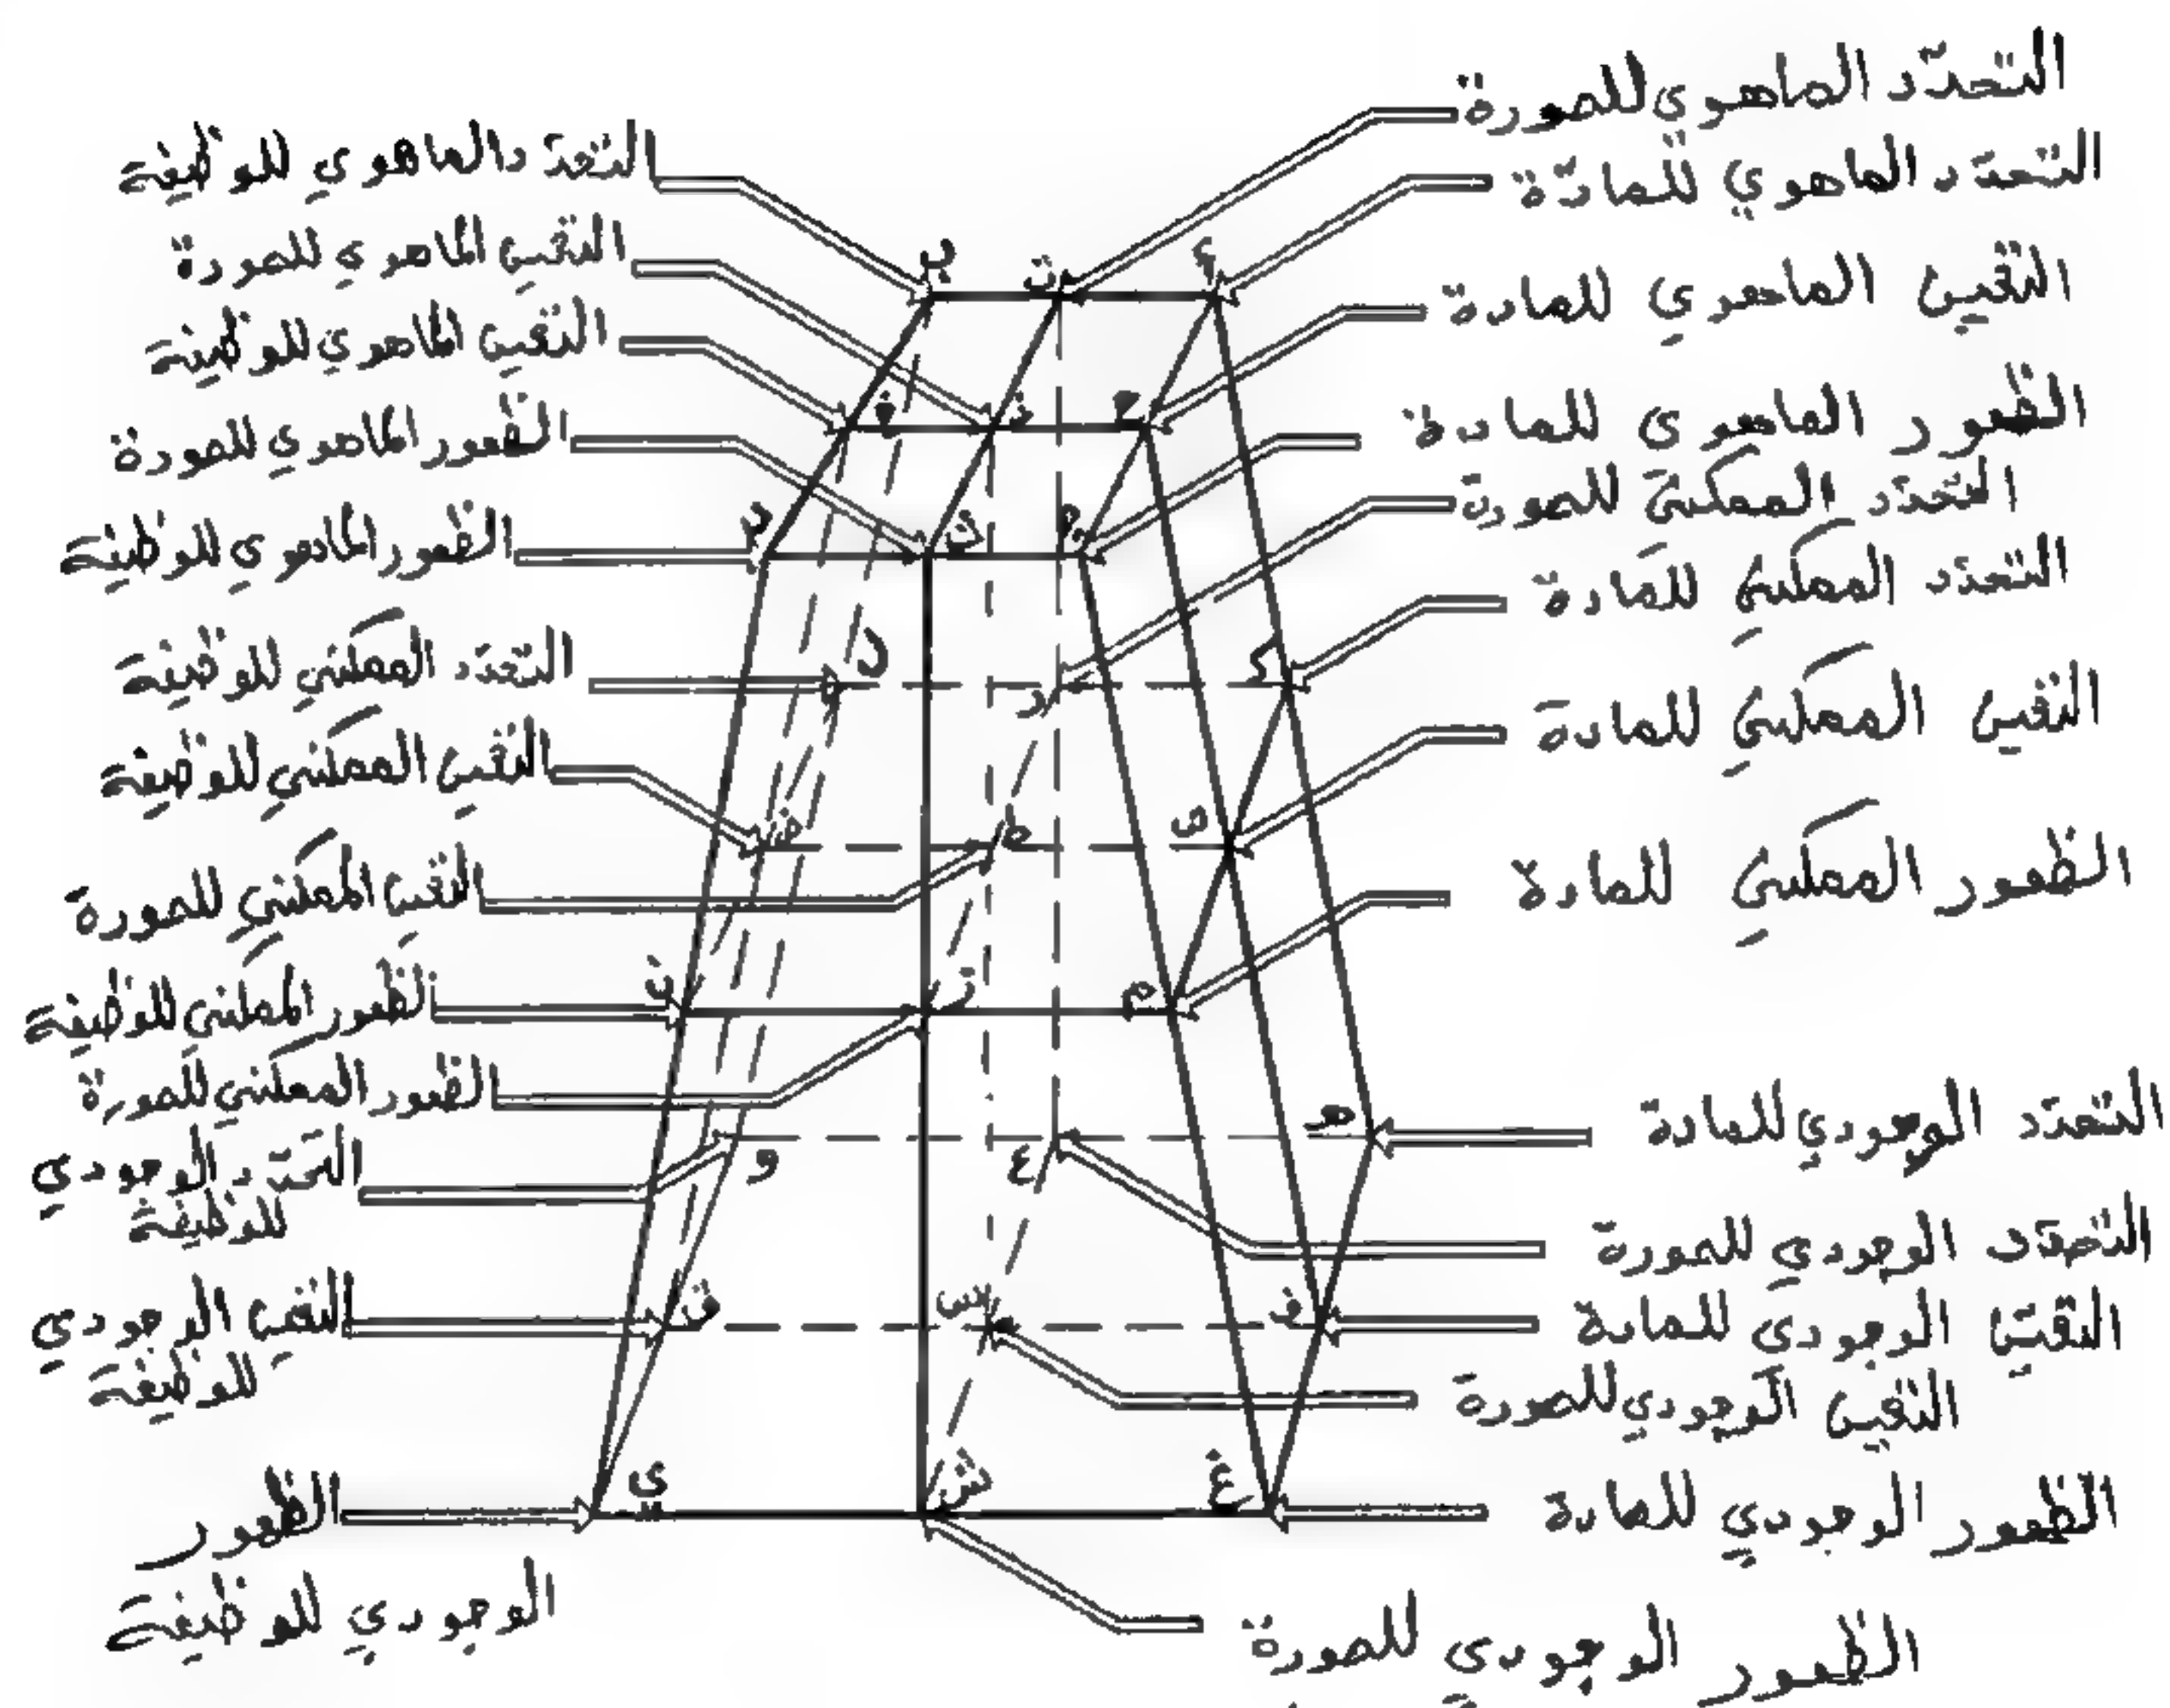 التحدّد الماهوي للصورة
التحدّد الماهوي للمادّة
التعين الماهوي للمادة
الظهور الماهوي للمادة
التحدّد الممكني للصورة
التحدّد الممكني للمادة
التعين الممكني للمادة
الظهور الممكني للمادة
التحدّد الوجودي للمادة
التحدّد الوجودي للصورة
التعين الوجودي للمادة
التعين الوجودي للصورة
الظهور الوجودي للمادة
الظهور الوجودي للصورة
التحدّد الماهوي للوظيفة
التعين الماهوي للصورة
التعين الماهوي للوظيفة
الظهور الماهوي للصورة
الظهور الماهوي للوظيفة
التحدد الممكني للوظيفة
التعين الممكني للوظيفة
التعين الممكني للصورة
الظهور الممكني للوظيفة
الظهور الممكني للصورة
التحدد الوجودي
للوظيفة
التعين الوجودي
للوظيفة
الظهور
الوجودي للوظيفة
ت
ح
ث
د
ك
ر
ط
م
ز
ن
هـ
ع
و
س
ق
غ
ش
ي